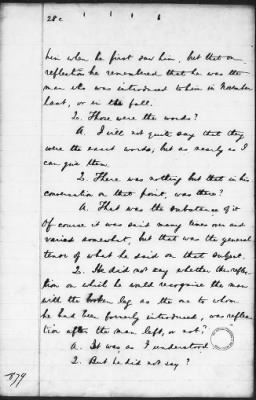 28c
him when he first saw him, but that on
reflection he remembered that he was the
man who was introduced to him in November
last, or in the fall.
Q. Those were the words?
A. I will not quite say that they
were the exact words; but as nearly as I
can give them.
Q. There was nothing but that in his
conversation on that point, was there?
A. That was the substance of it
Of course it was said many times over and
varied somewhat, but that was the general
tenor of what he said on that subject.
Q. He did not say whether the reflec-
tion on which he could recognise the man
with the broken leg as the one to whom
he had been formerly introduced, was reflec-
tion after the man left, or not?
A. It was as I understood
Q. But he did not say?
879